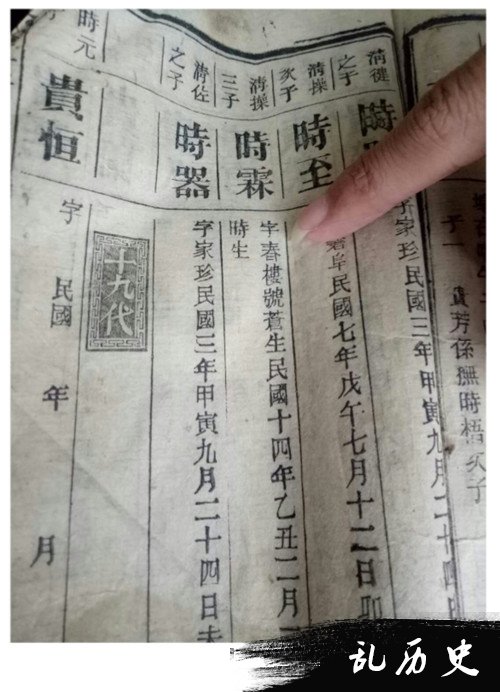 芳係撫時梧次子
清健
之子
時
字家珍民國三年甲寅九月二十四
清操
次子
時至
阜民國七年戊午七月十二日卯
清操
三子
時霖
字春樓號蒼生民國十四年乙丑二月
時生
清佐
之子
時器
字家珍民國三年甲寅九月二十四日未
十九代
時元
貴恒
字 民國 年 月
乱历史